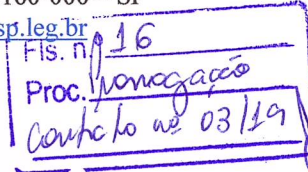 100-000 – SP
sp.leg.br
Fls. nº 16
Proc. prorrogação
contrato nº 03/19